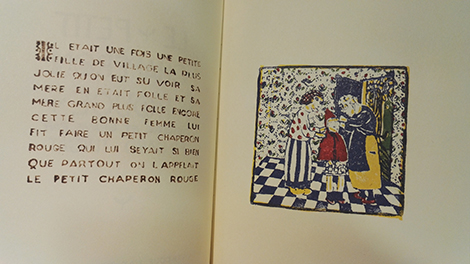 IL ETAIT UNE FOIS UNE PETITE
FILLE DE VILLAGE LA PLUS
JOLIE QU'ON EUT SU VOIR SA
MERE EN ETAIT FOLLE ET SA
MERE GRAND PLUS FOLLE ENCORE
CETTE BONNE FEMME LUI
FIT FAIRE UN PETIT CHAPERON
ROUGE QUI LUI SEYAIT SI BIEN
QUE PARTOUT ON L'APPELAIT
LE PETIT CHAPERON ROUGE